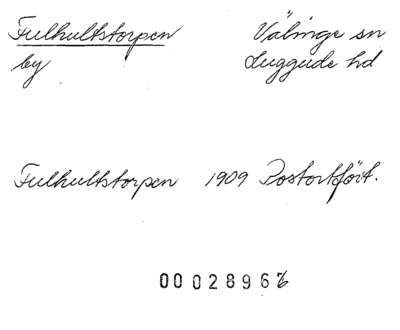 Fulhultstorpen Välinge sn
by Luggude hd
Fulhultstorpen 1909 Postortsfört.
00028966